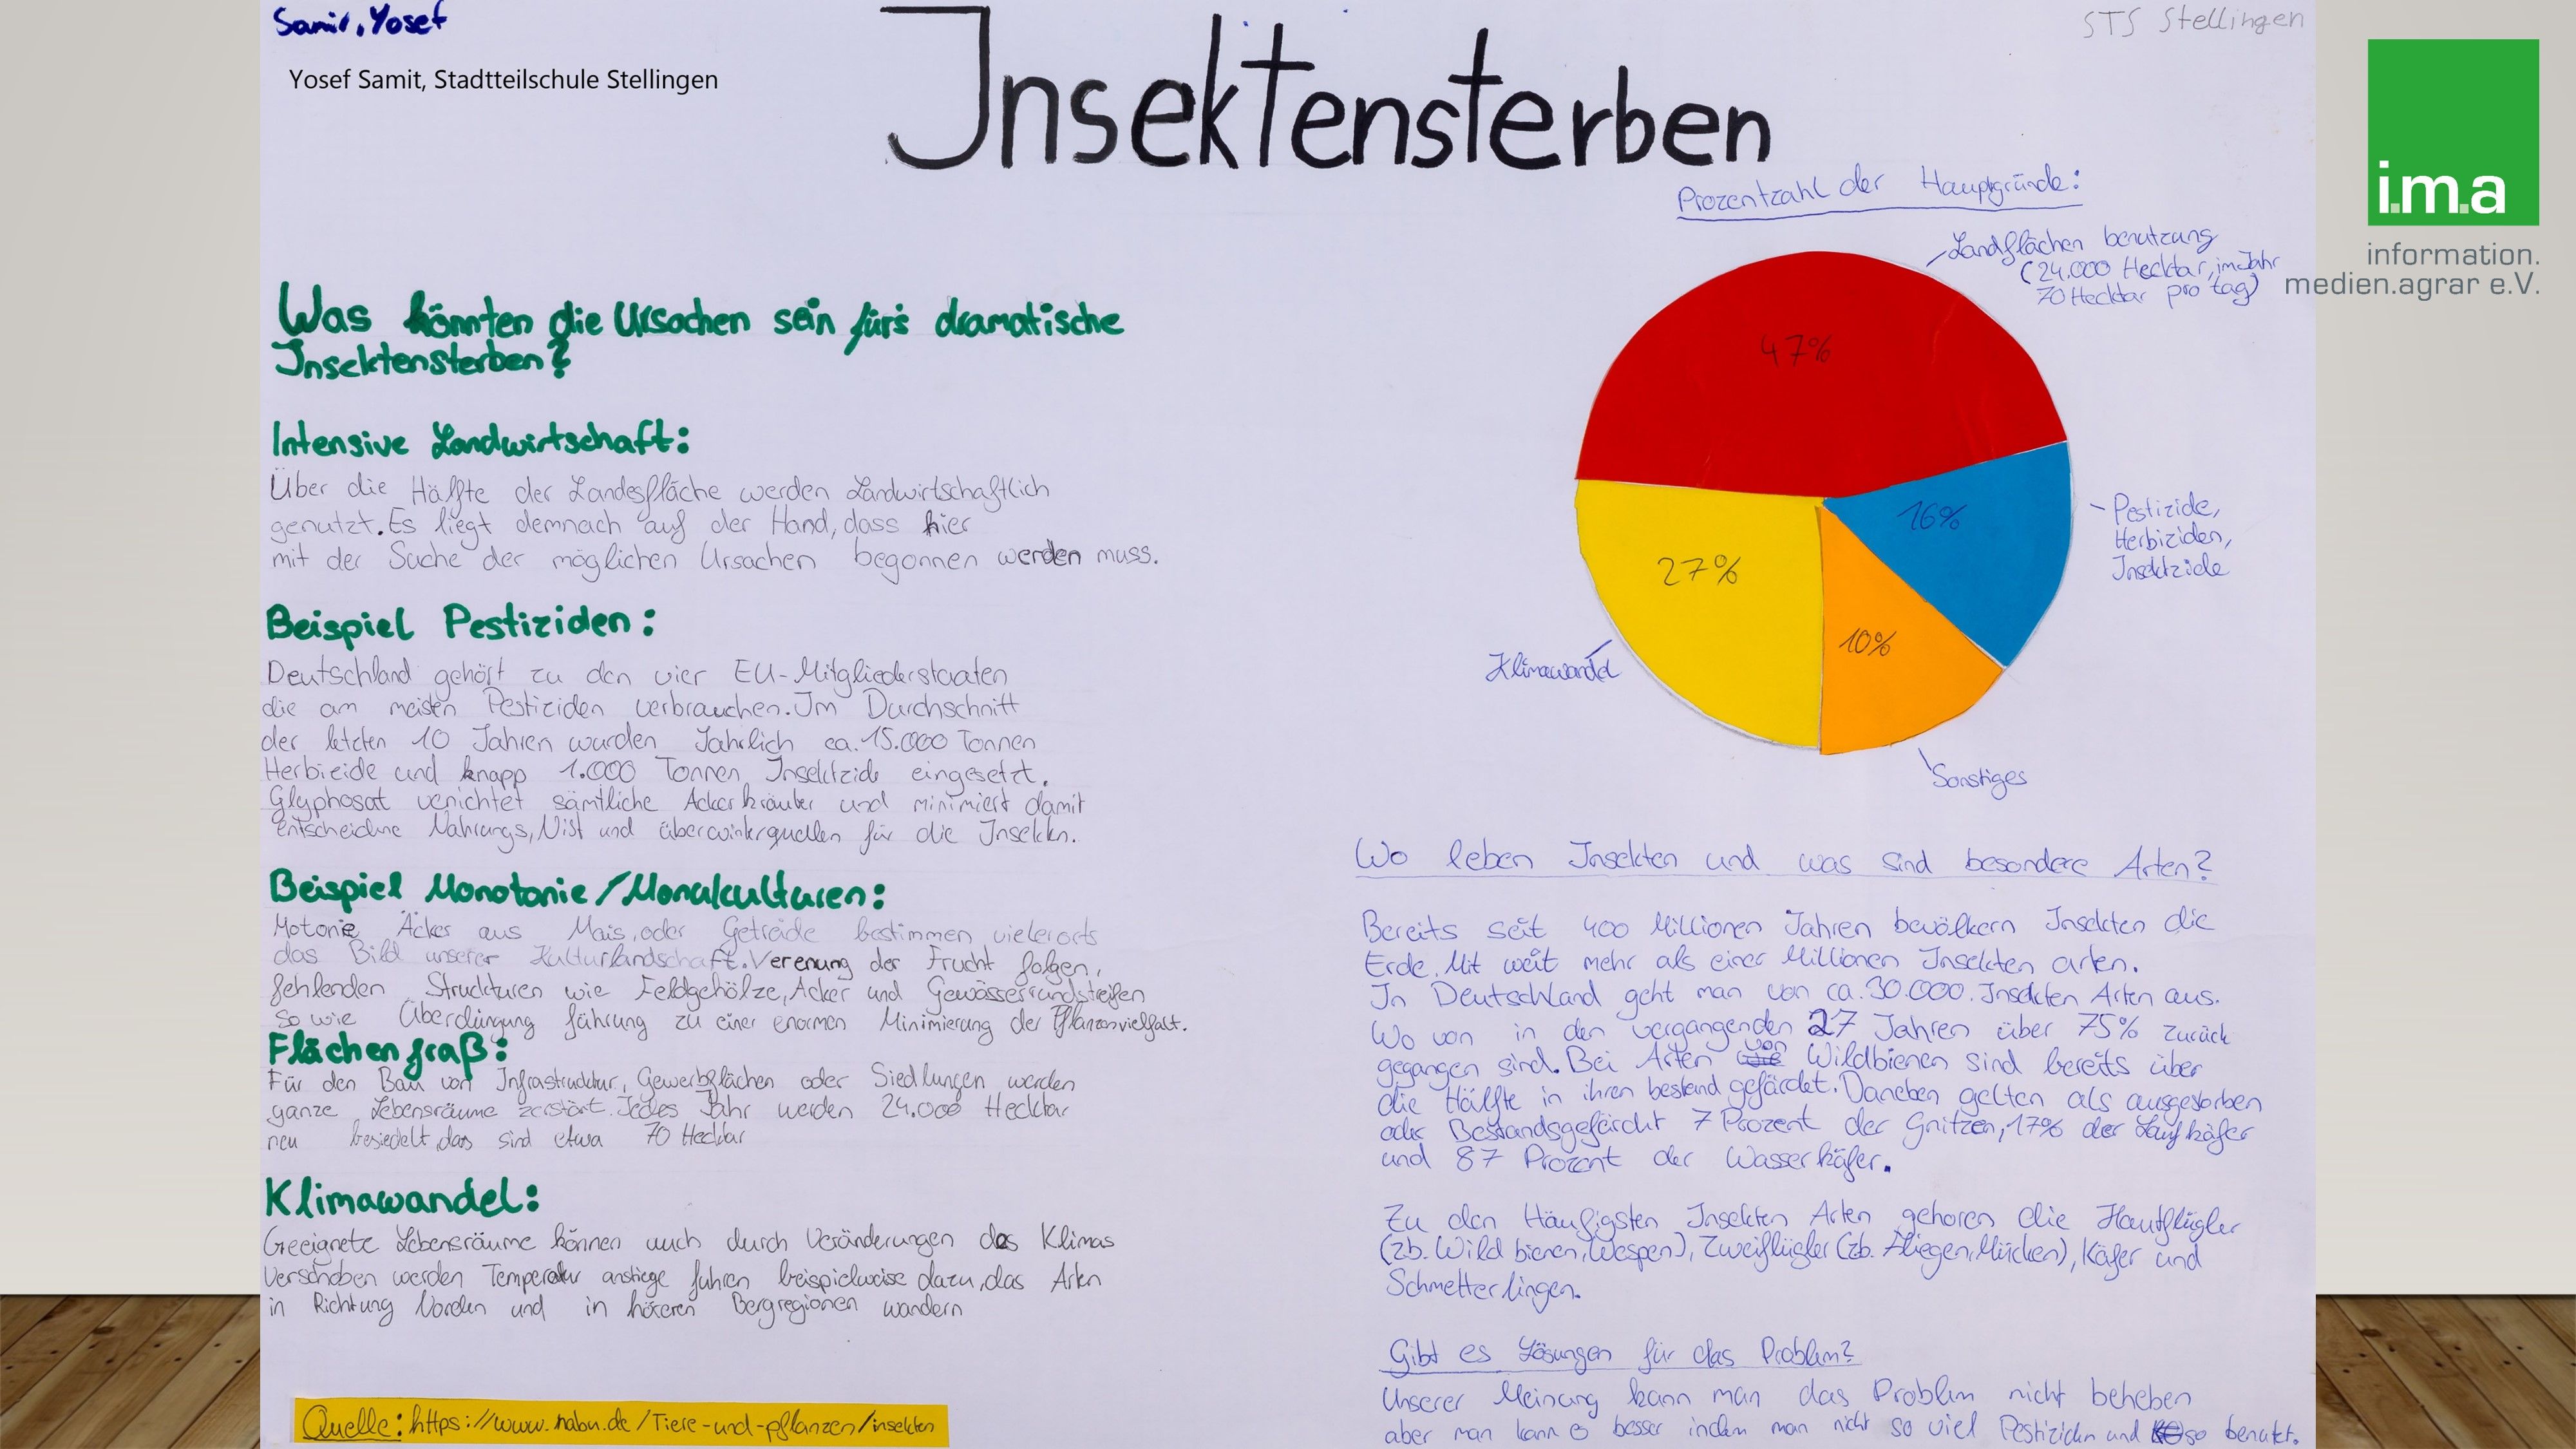 Samir, Yosef
STS Stellingen
Yosef Samit, Stadtteilschule Stellingen
Insektensterben
i.m.a
information.
medien.agrar e.V.
Was könnten die Ursachen sein für's dramatische
Insektensterben?
Intensive Landwirtschaft:
Über die Hälfte der Landesfläche werden Landwirtschaftlich
genutzt. Es liegt demnach auf der Hand, dass hier
mit der Suche der möglichen Ursachen begonnen werden muss.
Beispiel Pestiziden:
Deutschland gehört zu den vier EU-Mitgliederstaaten
die am meisten Pestiziden verbrauchen. Im Durchschnitt
der letzten 10 Jahren wurden Jährlich ca. 15.000 Tonnen
Herbizide und knapp 1.000 Tonnen Insektzide eingesetzt.
Glyphosat vernichtet sämtliche Ackerkräuter und minimiert damit
entscheidne Nahrungs, Nist und überwinterquellen für die Insekten.
Beispiel Monotonie/Monokulturen:
Motonie Äcker aus Mais, oder Getreide bestimmen vielerorts
das Bild unserer Kulturlandschaft. Verenung der Frucht folgen,
fehlenden Strukturen wie Feldgehölze, Acker und Gewässerrundstreifen
so wie Überdüngung führung zu einer enormen Minimierung der Pflanzenvielfalt.
Flächenfraß:
Für den Bau von Infrastruktur, Gewerbflächen oder Siedlungen werden
ganze Lebensräume zerstört. Jedes Jahr werden 24.000 Hecktar
neu besiedelt, das sind etwa 70 Hecktar
Klimawandel:
Geeignete Lebensräume können auch durch Veränderungen des Klimas
Verschoben werden Temperatur anstiege führen beispielweise dazu, das Arten
in Richtung Norden und in höreren Bergregionen wandern
Quelle: https://www.nabu.de/Tiere-und-pflanzen/insekten
Prozentzahl der Hauptgründe:
Landflächen benutzung
(24.000 Hecktar, im Jahr
70 Hecktar pro tag)
47%
16%
Pestizide,
Herbiziden,
Insektzide
27%
10%
Klimawandel
Sonstiges
Wo leben Insekten und was sind besondere Arten?
Bereits seit 400 Millionen Jahren bevölkern Insekten die
Erde. Mit weit mehr als einer Millionen Insekten arten.
In Deutschland geht man von ca. 30.000. Insekten Arten aus.
Wo von in den vergangenden 27 Jahren über 75% zurück
gegangen sind. Bei Arten von Wildbienen sind bereits über
die Hälfte in ihren bestand gefärdet. Daneben gelten als ausgestorben
oder Bestandsgefärdet 7 Prozent der Gnitzen, 17% der Laufkäfer
und 87 Prozent der Wasserkäfer.
Zu den Häufigsten Insekten Arten gehoren die Hautflügler
(zb. Wild bienen, Wespen), Zweiflügler (zb. Fliegen, Mücken), Käfer und
Schmetterlingen.
Gibt es Lösungen für das Problem?
Unserer Meinung kann man das Problem nicht beheben
aber man kann es besser indem man nicht so viel Pestiziden und so benutzt.